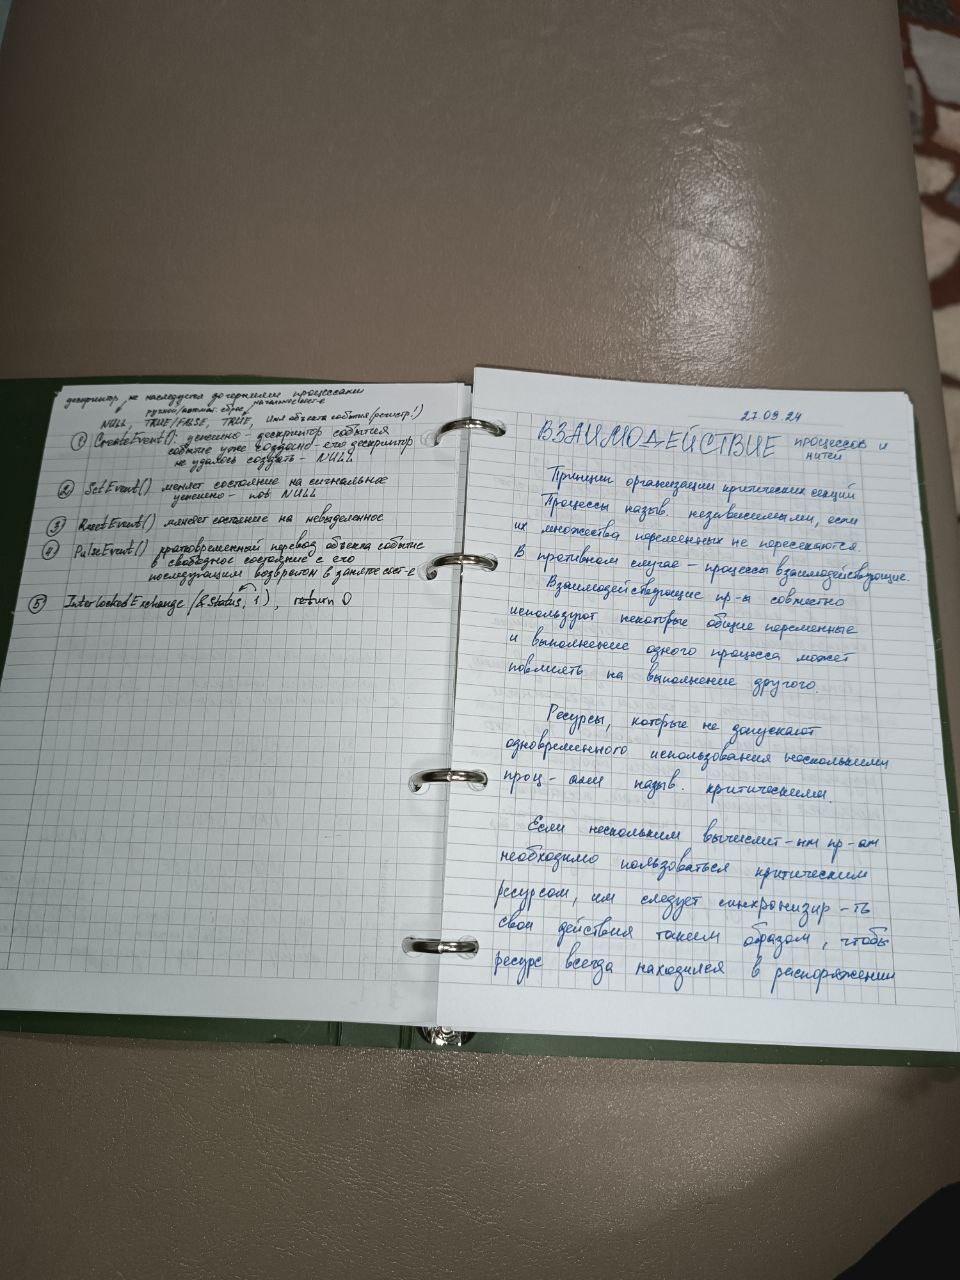 дескриптор не наследуется дочерними процессами
ручной/автомат. сброс начальное сост-е
NULL, TRUE/FALSE, TRUE, имя объекта события (регистр!)
① CreateEvent(): успешно - дескриптор события
событие уже создано - его дескриптор
не удалось создать - NULL
② SetEvent() меняет состояние на сигнальное
успешно - not NULL
③ ResetEvent() меняет состояние на невыделенное
④ PulseEvent() кратковременный перевод объекта событие
в свободное состояние с его
последующим возвратом в занятое сост-е
⑤ InterlockedExchange (&Status, 1), return 0
27.09.24
ВЗАИМОДЕЙСТВИЕ процессов и
нитей
Принцип организации критических секций
Процессы назыв. независимыми, если
их множества переменных не пересекаются.
В противном случае - процессы взаимодействующие.
Взаимодействующие пр-ы совместно
используют некоторые общие переменные
и выполнение одного процесса может
повлиять на выполнение другого.
Ресурсы, которые не допускают
одновременного использования несколькими
проц-ами назыв. критическими.
Если нескольким вычислит-ым пр-ам
необходимо пользоваться критическим
ресурсом, им следует синхронизир-ть
свои действия таким образом, чтобы
ресурс всегда находился в распоряжении